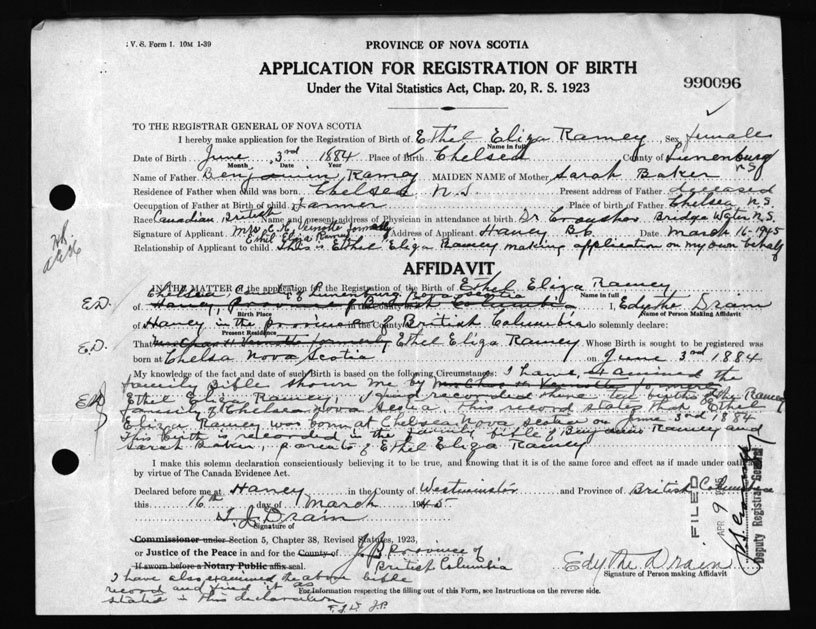 V. S. Form 1. 10M 1-39
PROVINCE OF NOVA SCOTIA
APPLICATION FOR REGISTRATION OF BIRTH
990096
Under the Vital Statistics Act, Chap. 20, R. S. 1923
TO THE REGISTRAR GENERAL OF NOVA SCOTIA
I hereby make application for the Registration of Birth of Ethel Eliza Ramey Sex female
Name in full
Date of Birth June 3rd 1884 Place of Birth Chelsea County of Lunenburg N S
Month Date Year
Name of Father Benjamin Ramey MAIDEN NAME of Mother Sarah Baker
Residence of Father when child was born Chelsea N.S. Present address of Father deceased
Occupation of Father at Birth of child Farmer Place of birth of Father Chelsea N.S.
Race Canadian British Name and present address of Physician in attendance at birth Dr. Bridge Water N.S.
Signature of Applicant Mrs C. H. formally Ethel Eliza Ramey Address of Applicant Haney B.C. Date March 16-1945
Relationship of Applicant to child This is Ethel Eliza Ramey making application on my own behalf
AFFIDAVIT
IN THE MATTER of the application for the Registration of Birth of Ethel Eliza Ramey
Name in full
Chelsea County of Lunenburg Nova Scotia
E.D. of Haney, Province of British Columbia I, Edythe Drain
Birth Place Name of Person Making Affidavit
of Haney in the province in the County of British Columbia do solemnly declare:
Present Residence
E.D. That formerly Ethel Eliza Ramey Whose Birth is sought to be registered was
born at Chelsea Nova Scotia on June 3rd 1884
My knowledge of the fact and date of such Birth is based on the following Circumstances: I have examined the
family Bible shown me by formerly
ED Ethel Eliza Ramey, being recorded there ten births the Ramey
family of Chelsea Nova Scotia. This record states that Ethel
Eliza Ramey was born at Chelsea Nova Scotia on June 3rd 1884
This Birth is recorded in the family bible of Benjamin Ramey and
Sarah Baker, parents of Ethel Eliza Ramey
I make this solemn declaration conscientiously believing it to be true, and knowing that it is of the same force and effect as if made under oath
by virtue of The Canada Evidence Act.
Declared before me at Haney in the County of Westminster and Province of British Columbia
this 16th day of March 1945
Signature of
Commissioner under Section 5, Chapter 38, Revised Statutes, 1923,
or Justice of the Peace in and for the County of J.P. Province of
If sworn before a Notary Public affix seal. British Columbia
Edythe Drain
Signature of Person making Affidavit
I have also examined the above bible
record and find it as
stated in this declaration
For Information respecting the filling out of this Form, see Instructions on the reverse side.
FILED
APR 9
Deputy Registrar General